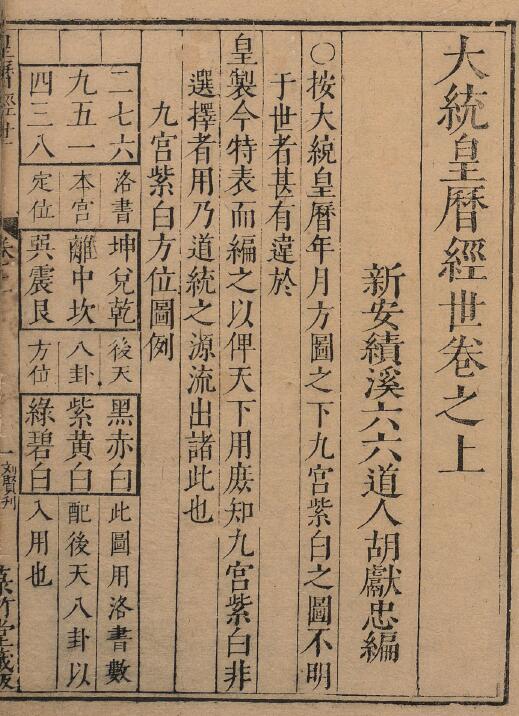 大統皇曆經世卷之上
新安績溪六六道人胡獻忠編
○按大統皇曆年月方圖之下九宮紫白之圖不明
于世者甚有違於
皇製今特表而編之以俾天下用庶知九宮紫白非
選擇者用乃道統之源流出諸此也
九宮紫白方位圖例
二七六
洛書
坤兌乾
後天
黑赤白
此圖用洛書數
九五一
本宮
離中坎
八卦
紫黃白
配後天八卦以
四三八
定位
巽震艮
方位
綠碧白
入用也
皇曆經世
卷上
一
刘賢刊